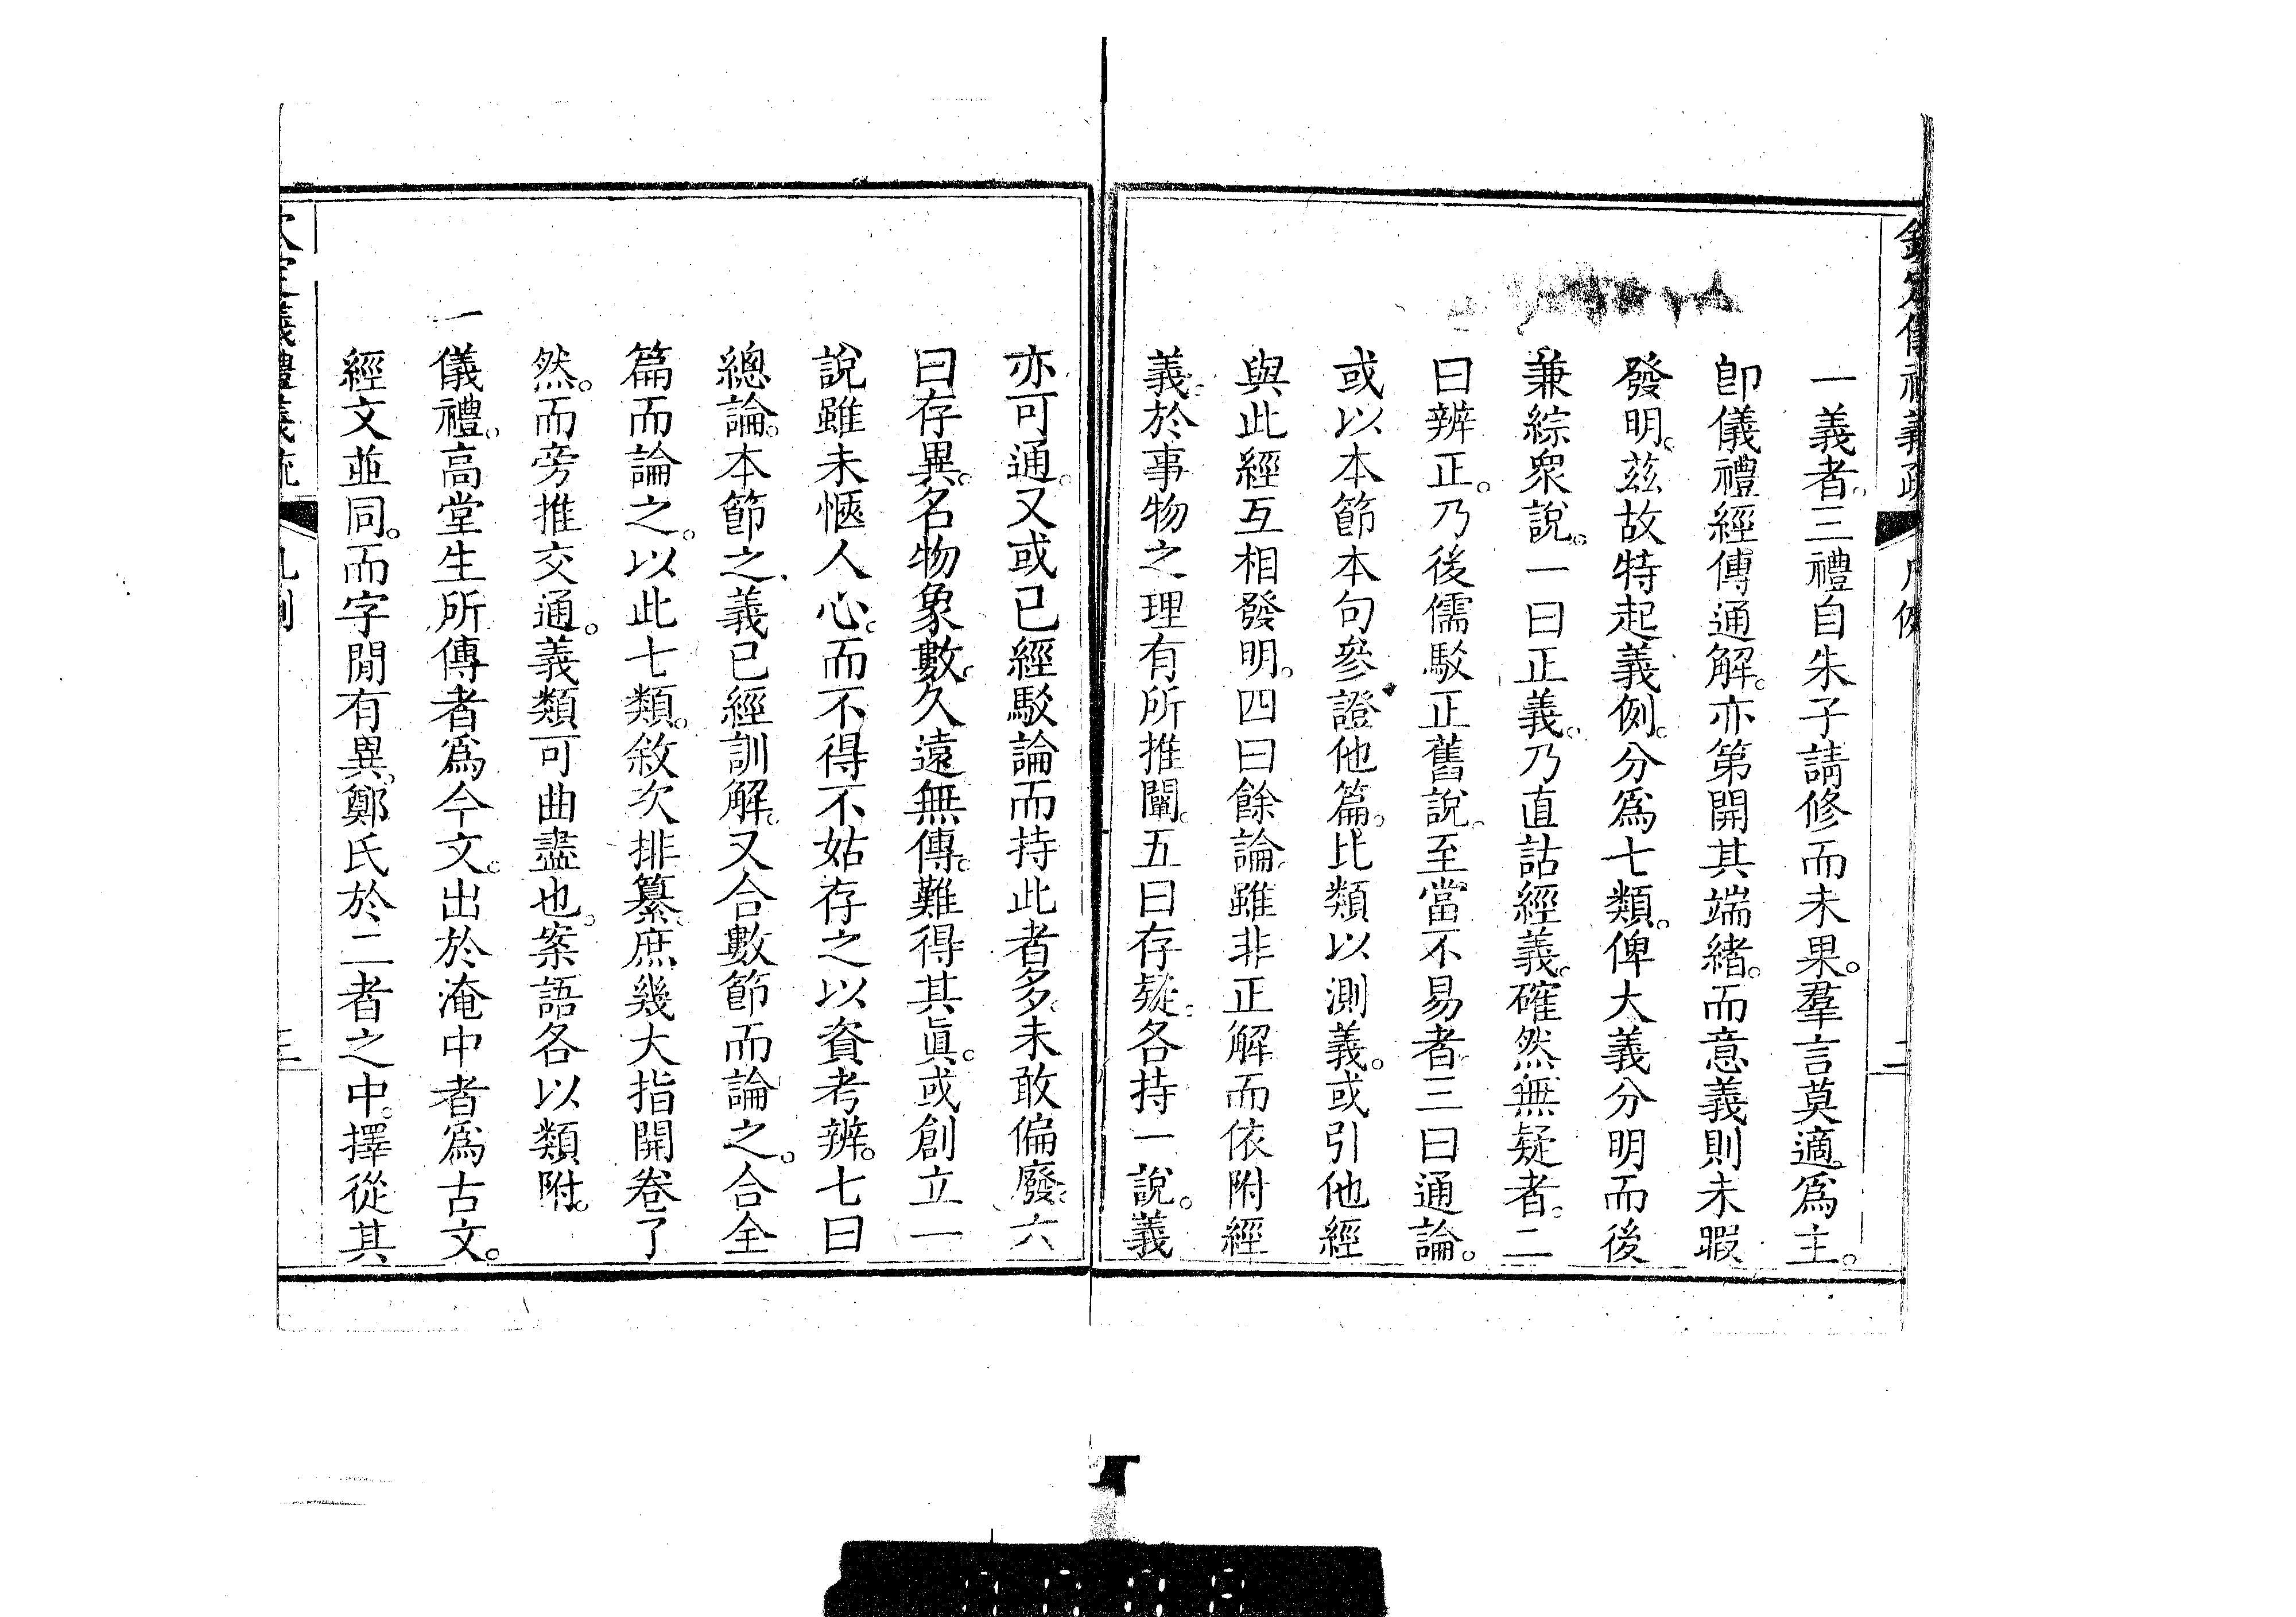 欽定儀禮義疏 凡例 二
一義者三禮自朱子請修而未果。羣言莫適爲主。
卽儀禮經傳通解。亦第開其端緒。而意義則未暇
發明。茲故特起義例。分爲七類。俾大義分明而後
兼綜衆說。一曰正義。乃直詁經義。確然無疑者。二
曰辨正。乃後儒駁正舊說。至當不易者。三曰通論。
或以本節本句參證他篇。比類以測義。或引他經
與此經互相發明。四曰餘論。雖非正解而依附經
義。於事物之理有所推闡。五曰存疑。各持一說。義
亦可通。又或已經駁論而持此者多。未敢偏廢。六
曰存異。名物象數。久遠無傳。難得其眞。或創立一
說雖未愜人心。而不得不姑存之以資考辨。七曰
總論。本節之義已經訓解。又合數節而論之。合全
篇而論之。以此七類。敘次排纂。庶幾大指開卷了
然。而旁推交通。義類可曲盡也。案語各以類附。
一儀禮。高堂生所傳者爲今文。出於淹中者爲古文。
經文並同。而字閒有異。鄭氏於二者之中。擇從其
欽定儀禮義疏 凡例 三